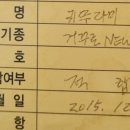 명 귀뚜라미
기종 거꾸로 NEW
호
합여부 적 합
월 일 2015. 12
항